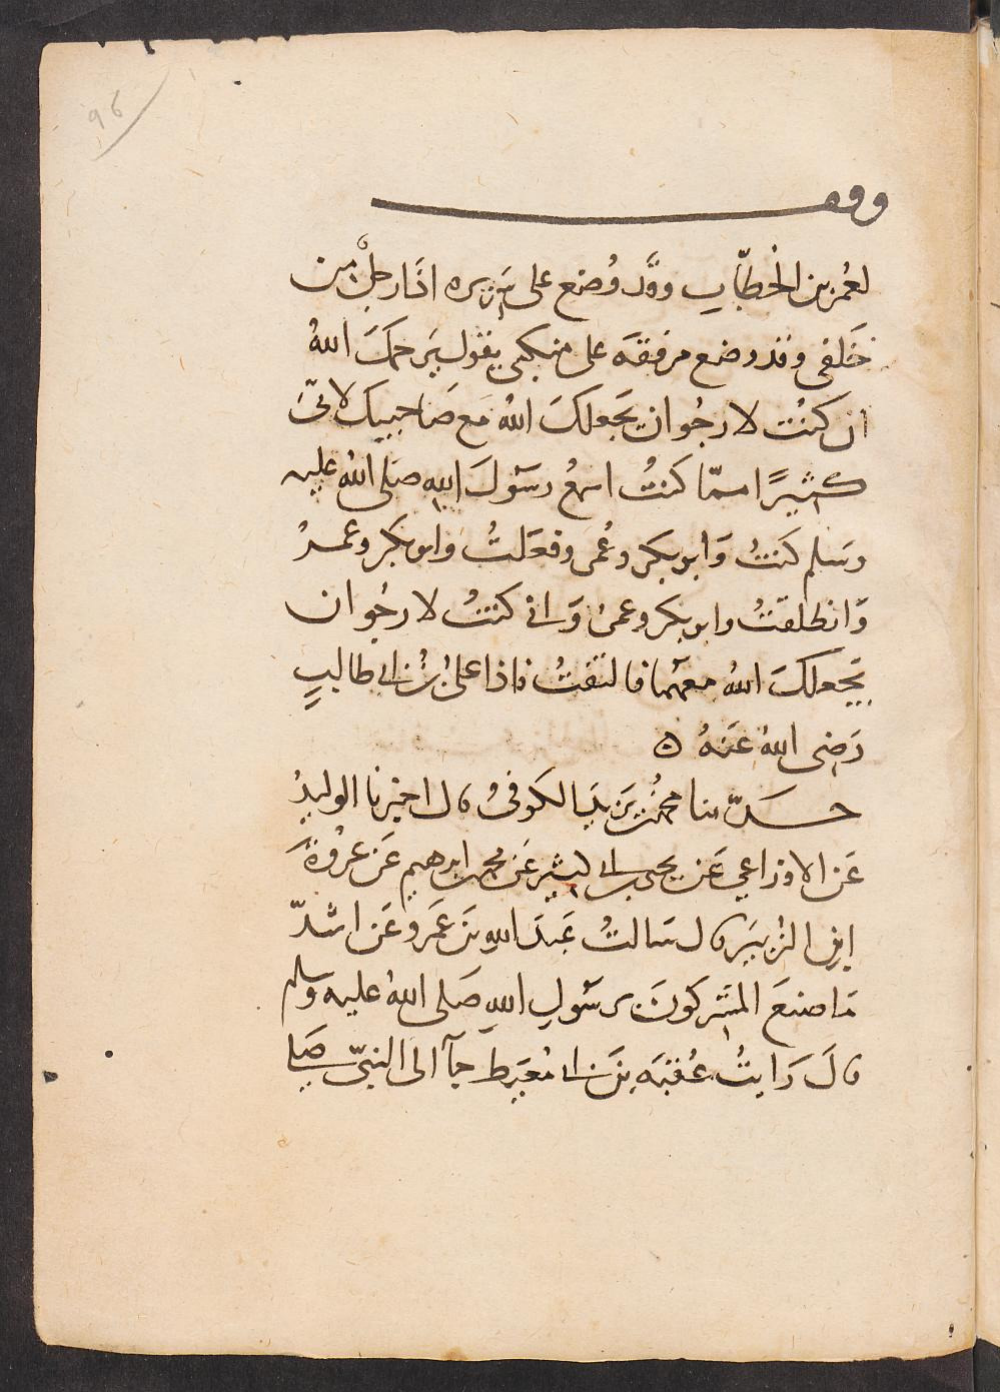 96
وقف
لعُمَر بن الخطّابِ وقَد وُضع على سَرِيره اذَا رجلٌ مِن
خَلفى وقد وضع مرفقَه على منكبى يقول يَرحمَكَ اللهُ
ان كنُت لارجُوا ان يجَعلكَ اللهُ مَع صَاحبيك لانّىَ
كثيرًا ممّا كنتُ اسمعُ رسَولَ اللهِ صلى اللهُ عليه
وسَلم كنتُ وَابو بكر وعُمر وفعَلتُ وابو بكر وعمرُ
وَانطلقتُ وابو بكر وعمرُ وَانى كنتُ لارجُوا ان
يَجعلكَ اللهُ معهمَا فالتفتُ فاذا علىُّ بنُ ابى طالبٍ
رَضى اللهُ عَنهُ ه
حَدّثنا محمّدُ بنُ يَزيدَ الكوفىُ قال اخبرنا الوليدُ
عَن الاوزاعي عَن يحيى بن ابى كثير عَن محمد بن ابرهيم عَن عرُوةَ
ابنِ الزُبيَر قال سَالتُ عَبدَ اللهِ بنَ عَمَرو عَن اشَدّ
مَا صنعَ المشَركونَ برسَولِ اللهِ صَلى اللهُ عليه وسلم
قالَ رَايتُ عُقبَه بنَ ابى مُعَيط جآَ الى النبّى صَلى